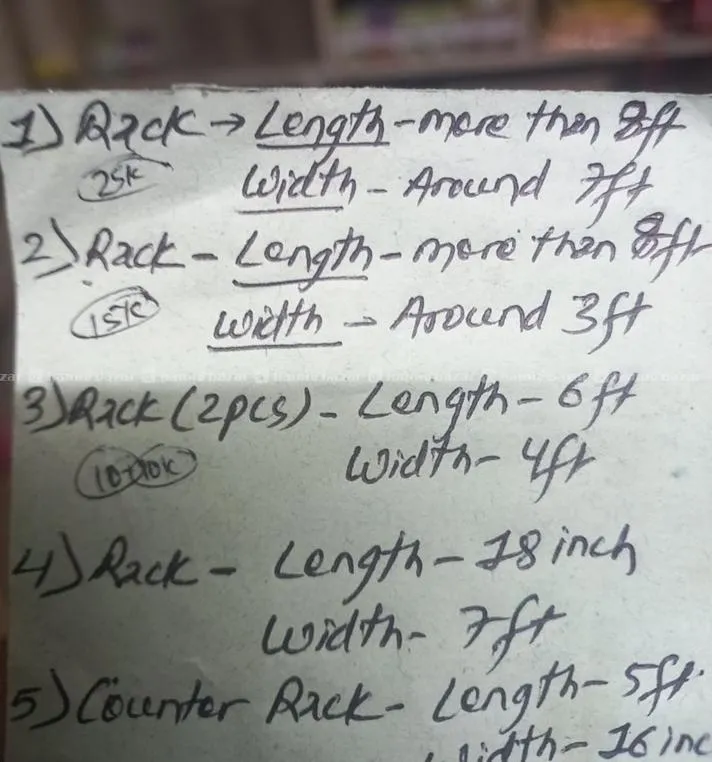 1) Rack → Length - more then 8ft
25K Width - Around 7ft
2) Rack - Length - more then 8ft
15K Width - Around 3ft
3) Rack (2pcs) - Length - 6ft
10+10K Width - 4ft
4) Rack - Length - 18 inch
Width - 7ft
5) Counter Rack - Length - 5ft.
Width - 16 inc